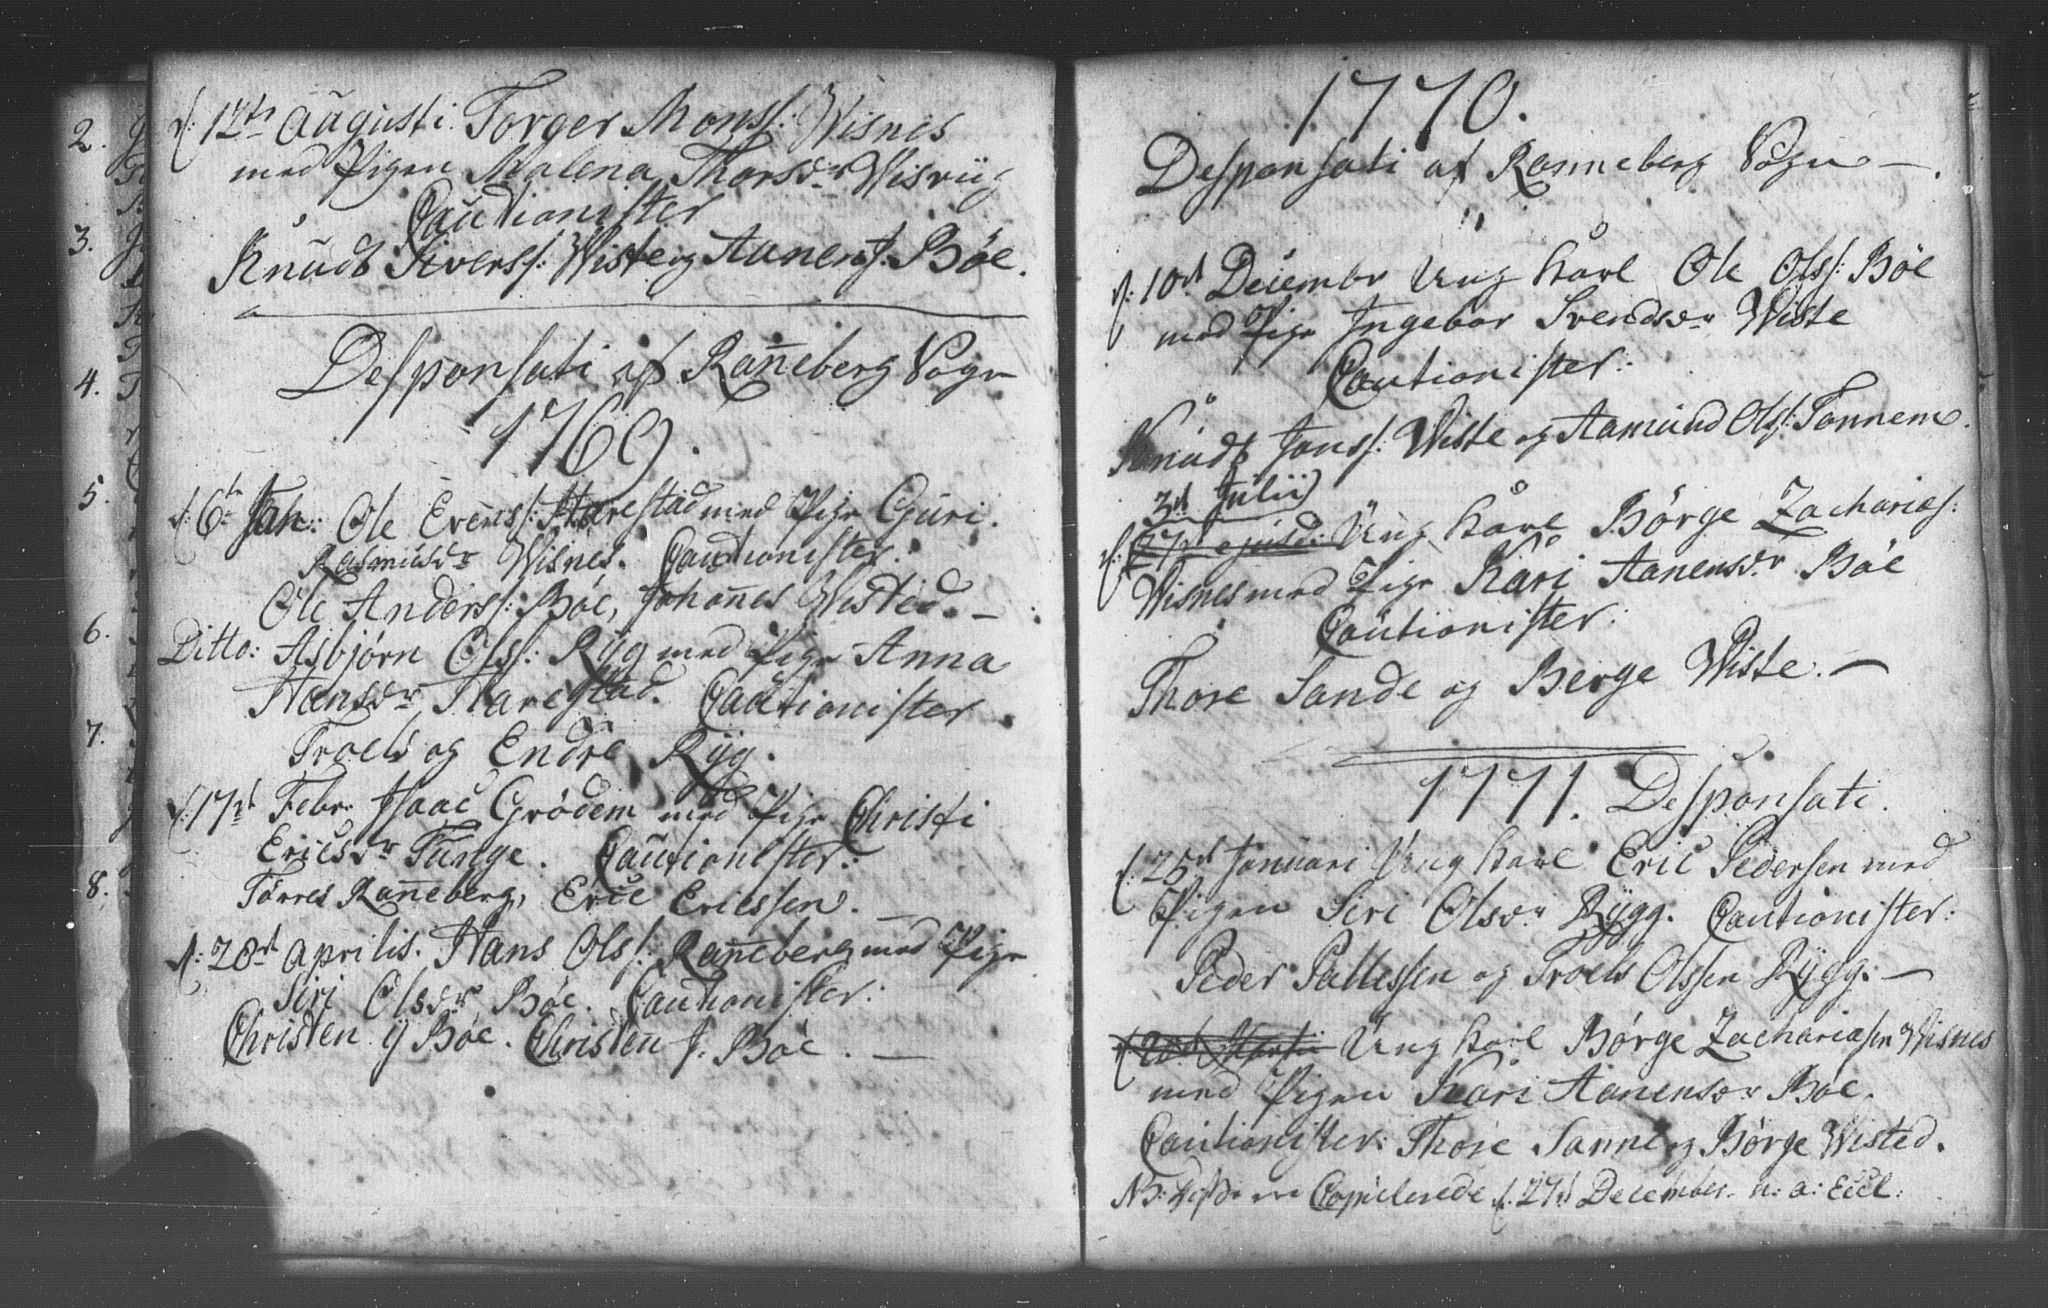 2.
3.
4.
5.
6.
7.
8.
d: 12te Augusti Torger Monss: Wisnes
med Pigen Malena Thorsdr Wisnes
Cautionister
Knudt Siverss: Wiste og Aanen J. Bøe.
Desponsati af Ranneberg Sogn
1769.
d: 6te Jan: Ole Evenss: Harestad med Pige Guri
Rasmusdr Wisnes. Cautionister:
Ole Anderss: Bøe, Johannes Wisted. —
Ditto: Asbjørn Olss: Ryg med Pige Anna
Hansdr Harestad. Cautionister
Troels og Endre Ryg.
d: 17de Febr. Isaac Grødem med Pige Christi
Ericsdr Tunge. Cautionister:
Torres Ranneberg, Eric Ericssen. —
d: 28de Aprilis. Hans Olss: Ranneberg med Pige
Siri Olsdr Bøe. Cautionister:
Christen ij Bøe. Christen J. Bøe. —
1770.
Desponsati af Ranneberg Sogn —.
d: 10de Decembr Ung Karl Ole Olss: Bøe
med Pige Ingebor Svendsdr Wiste
Cautionister:
Knudt Jonss: Wiste og Aamund Olss: Tonnem.
3de Julii
d: Ung Karl Børge Zacharies:
Wisnes med Pige Kari Aanensdr Bøe
Cautionister:
Thore Sande og Berge Wiste. —
1771. Desponsati.
d: 25de Januari Ung Karl Eric Pedersen med
Pigen Siri Olsdr Rygg. Cautionister:
Peder Pallessen og Troels Olssen Rygg. —
d 20de Martii Ung Karl Børge Zachariasen Wisnes
med Pigen Kari Aanensdr Bøe.
Cautionister: Thore Sanne og Børge Wisted.
NB: Copulerede d. 27de December. n: a: Eccl: